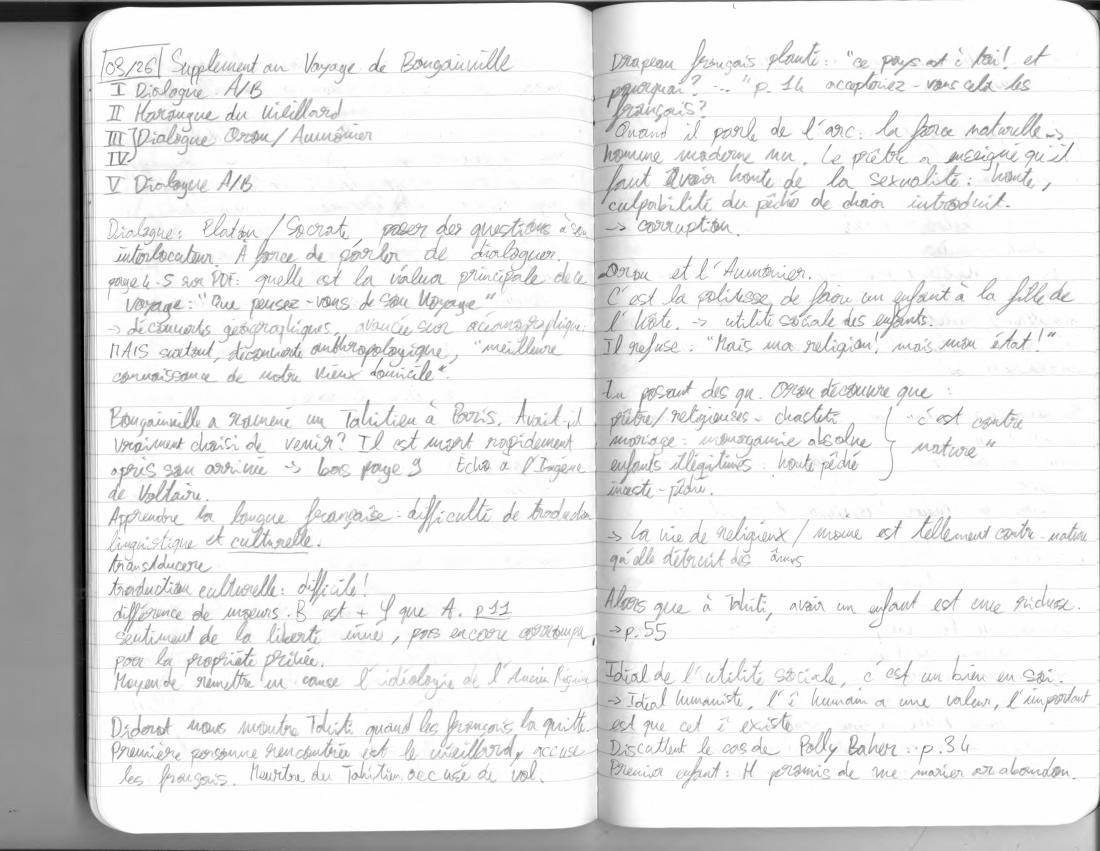 03/26 Supplement au Voyage de Bougainville
I Dialogue A/B
II Harangue du vieillard
III Dialogue Orou/Aumônier
IV
V Dialogue A/B
Dialogue: Platon/Socrate, poser des questions à son
interlocuteur. À force de parler de dialoguer.
page 4-5 sur PDF: quelle est la valeur principale de ce
voyage: "Que pensez-vous de son Voyage"
→ découverts géographiques, avancée sur océanographique.
MAIS surtout, découverte anthropologique, "meilleure
connaissance de notre vieux domicile".
Bougainville a ramené un Tahitien à Paris. Avait-il
vraiment choisi de venir? Il est mort rapidement
après son arrivée → bas page 9 Écho à l'Ingénu
de Voltaire.
Apprendre la langue française: difficulté de traduction
linguistique et culturelle.
transducere
traduction culturelle: difficile!
différence de moeurs. B est + φ que A. p11
sentiment de la liberté inné, pas encore corrompu
par la propriété privée.
Moyen de remettre en cause l'idéologie de l'Ancien Régime
Diderot nous montre Tahiti quand les français la quitte.
Première personne rencontrée est le vieillard, accuse
les français. Meurtre du Tahitien accusé de vol.
Drapeau français planté: "ce pays est à toi! et
pourquoi? ... " p.14 accepteriez-vous cela les
français?
Quand il parle de l'arc: la force naturelle →
homme moderne nu. Le prêtre a enseigné qu'il
faut avoir honte de la sexualité: honte,
culpabilité du péché de chair introduit.
→ corruption.
Orou et l'Aumônier.
C'est la politesse de faire un enfant à la fille de
l'hôte. → utilité sociale des enfants.
Il refuse: "Mais ma religion! mais mon état!"
En posant des qu. Orou découvre que:
prêtre/religieuses - chasteté
mariage: monogamie absolue "c'est contre
enfants illégitimes. honte péché nature"
inceste - péché.
→ la vie de religieux/moine est tellement contre-nature
qu'elle détruit des âmes
Alors que à Tahiti, avoir un enfant est une richesse.
→ p.55
Idéal de l'utilité sociale, c'est un bien en soi.
→ Idéal humaniste, l'ê humain a une valeur, l'important
est que cet ê existe
Discuttent le cas de Polly Baker: p.34
Premier enfant: H promis de me marier abandon.